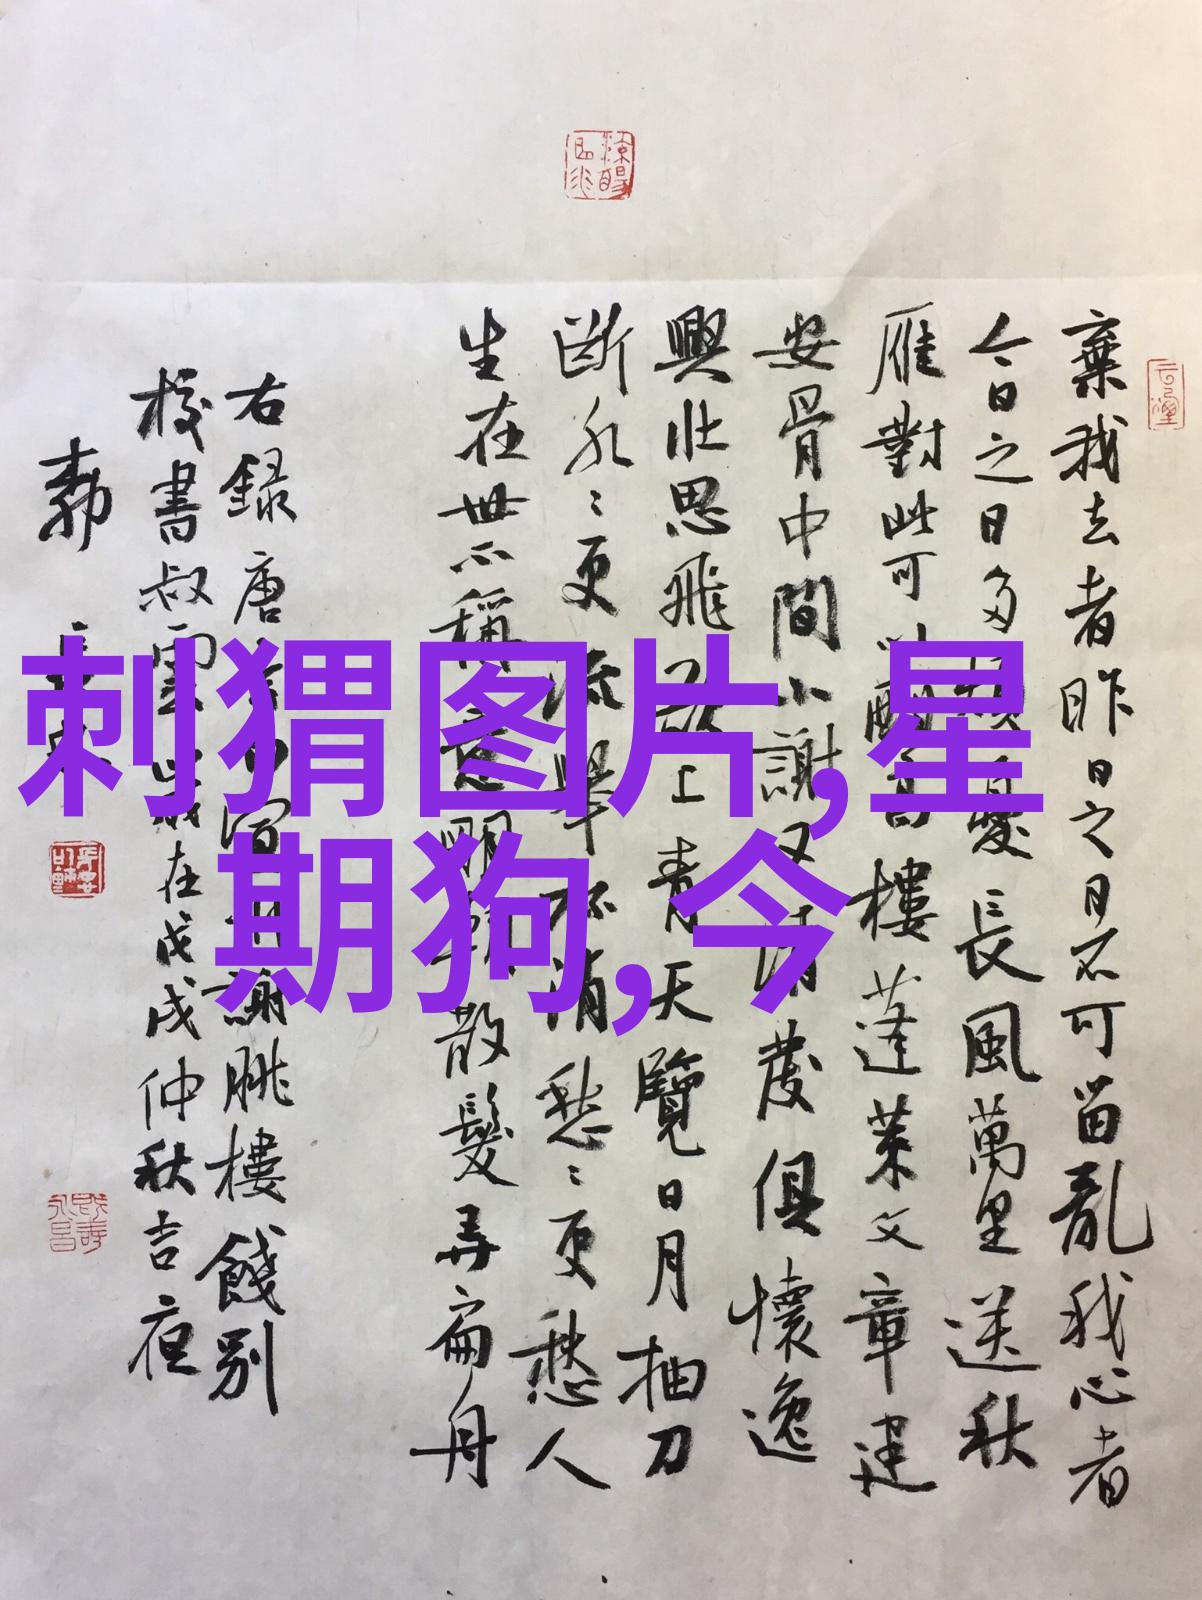 棄我去者昨日之日不可留亂我心者
今日之日多憂長風萬里送秋
雁對此可以酣高樓蓬萊文章建
安骨中間小謝又清發俱懷逸
興壯思飛欲上青天覽日月抽刀
斷水〻更流舉杯消愁〻更愁人
生在世不稱意明朝散髮弄扁舟
右錄唐謝朓樓餞別
校書叔雲歲在戊戌仲秋吉夜
刺猬图片,星
期狗,今